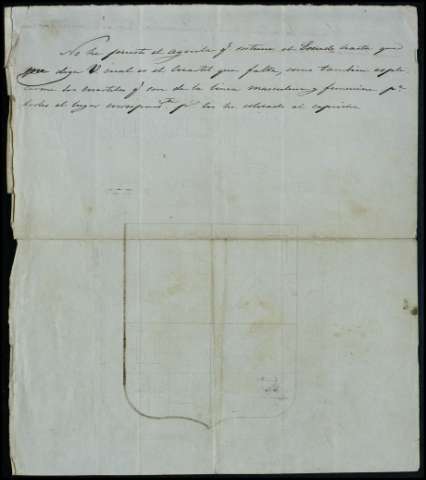 No he puesto el aguila q.e sostiene el Escudo hasta que
que diga V. cual es el cuartel que falta, como tambien
los cuarteles q.e son de la linea masculina y femenina p.a
el lugar correspond.te p.s los he colocado al capricho